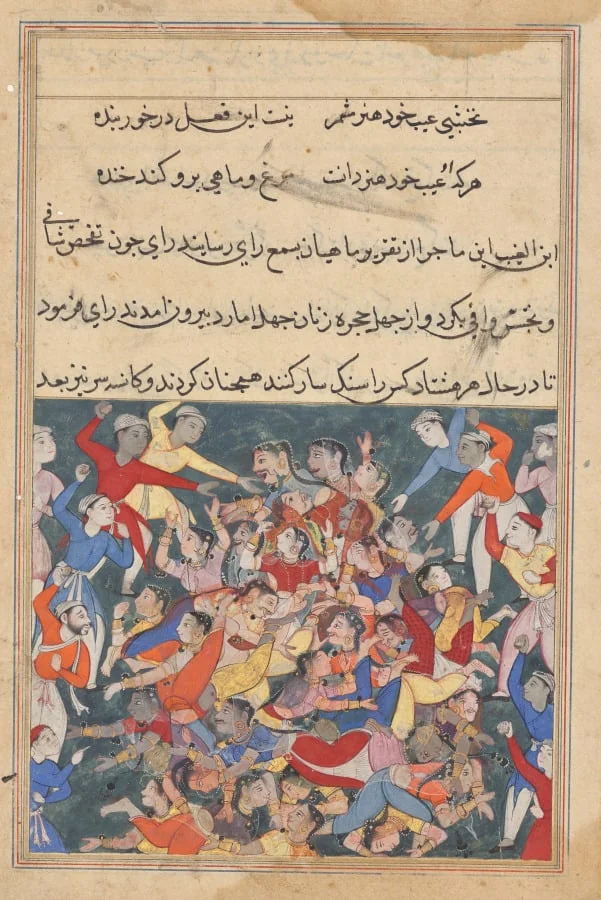 نخشبی عیب خود هنر شمر نیست این فعل در خور بنده
هر که او عیب خود هنر دانست مرغ و ماهی برو کند خنده
ابن الغیب این ماجرا از تقریر ماهیان بسمع رای رسانید رای چون تفحص شافی
و تجسس وافی بکرد و از چهل حجره زنان چهل امارد بیرون آمدند رای فرمود
تا در حال هر هشتاد کس را سنک سار کنند همچنان کردند و کاسه سر نیز بعد